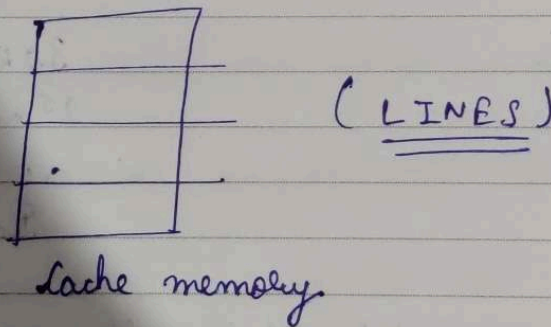 (LINES)
Cache memory